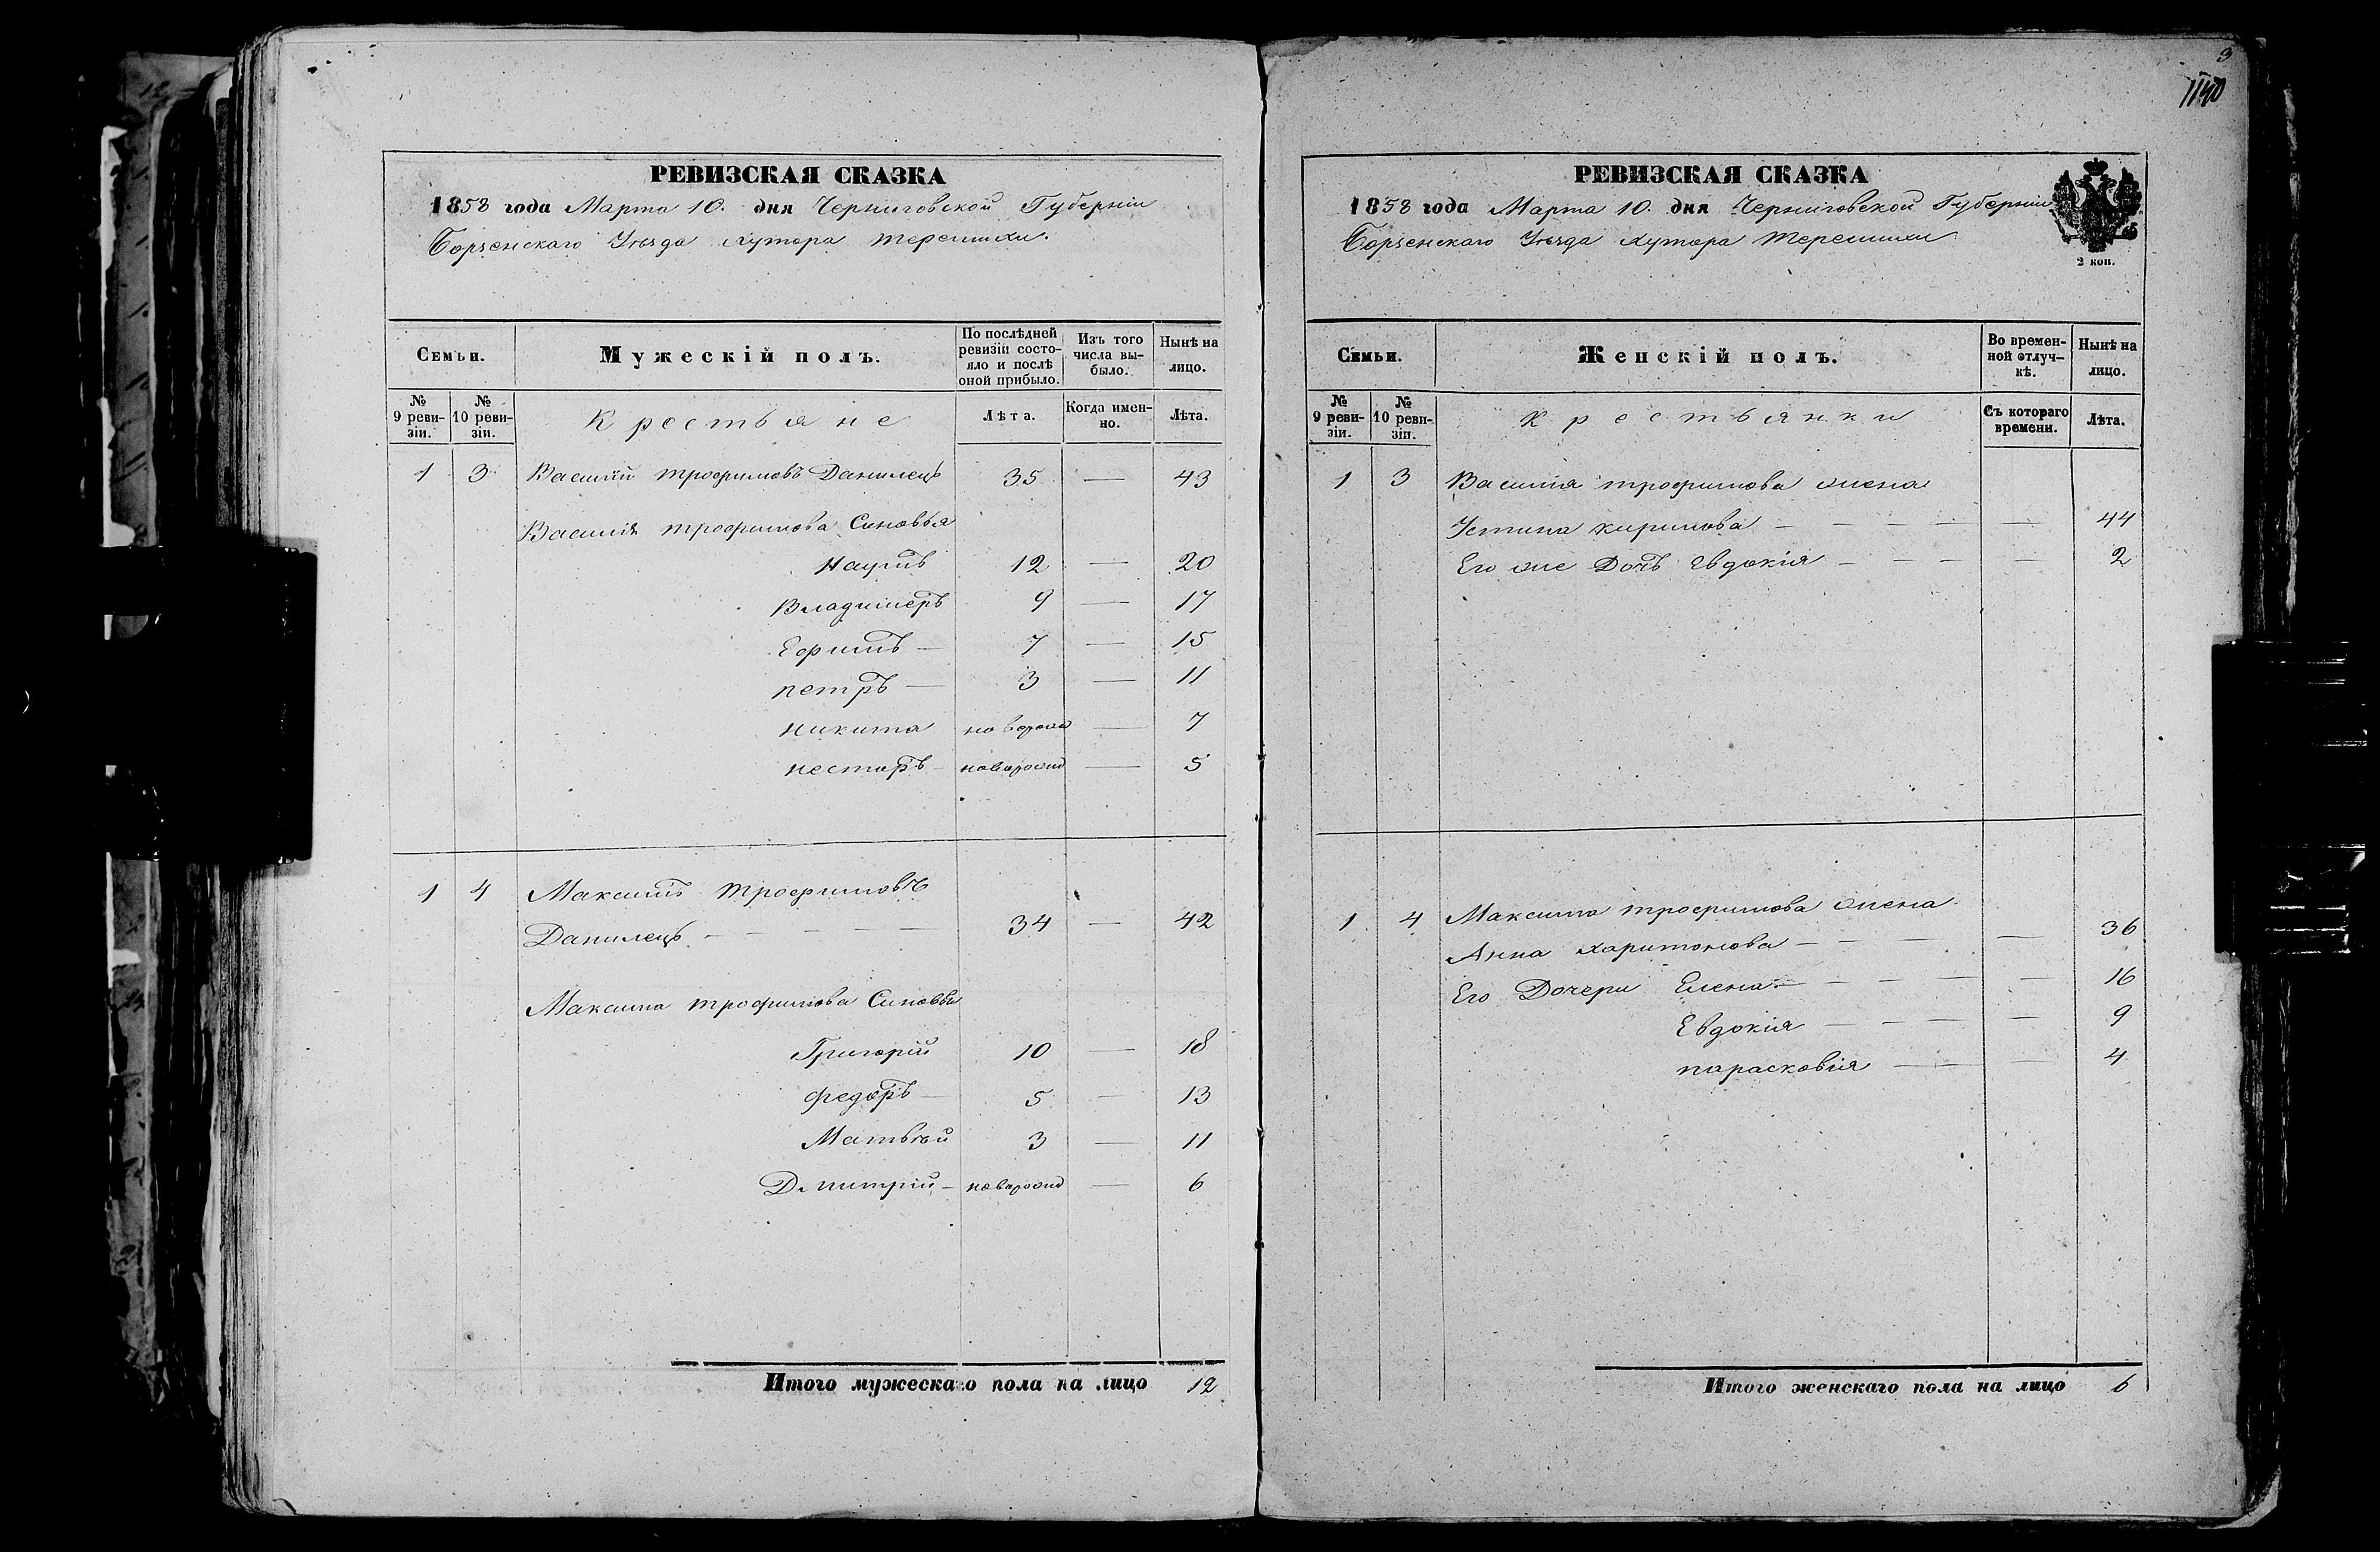 РЕВИЗСКАЯ СКАЗКА
1858 года Марта 10. дня Черниговской Губерніи
Борзенскаго Уѣзда хутора Терешихи.
Семьи.
Мужескій полъ.
По послѣдней ревизіи состояло и послѣ оной прибыло.
Изъ того числа выбыло.
Нынѣ на лицо.
№ 9 ревизіи.
№ 10 ревизіи.
Крестьяне
Лѣта.
Когда именно.
Лѣта.
1 3 Василій трофимовъ Данилецъ 35 — 43
Василія трофимова Синовья
Наумъ 12 — 20
Владимеръ 9 — 17
Ефимъ — 7 — 15
петръ — 3 — 11
никита новорожд — 7
несторъ — новорожд — 5
1 4 Максимъ трофимовъ
Данилецъ — — — — — 34 — 42
Максима трофимова Синовья
Григорій 10 — 18
федоръ — 5 — 13
Матвѣй 3 — 11
Дмитрій — новорожд — 6
Итого мужескаго пола на лицо 12
3
1140
РЕВИЗСКАЯ СКАЗКА
1858 года Марта 10. дня Черниговской Губерніи
Борзенскаго Уѣзда хутора Терешихи
2 коп.
Семьи.
Женскій полъ.
Во временной отлучкѣ.
Нынѣ на лицо.
№ 9 ревизіи.
№ 10 ревизіи.
Крестьянки
Съ котораго времени.
Лѣта.
1 3 Василія трофимова жена
Устина кирилова — — — — — — 44
Его же Дочь Евдокія — — — — — 2
1 4 Максима трофимова жена
Анна харитонова — — — — 36
Его Дочери Елена — — — — — 16
Евдокія — — — — — 9
парасковія — — — 4
Итого женскаго пола на лицо 6